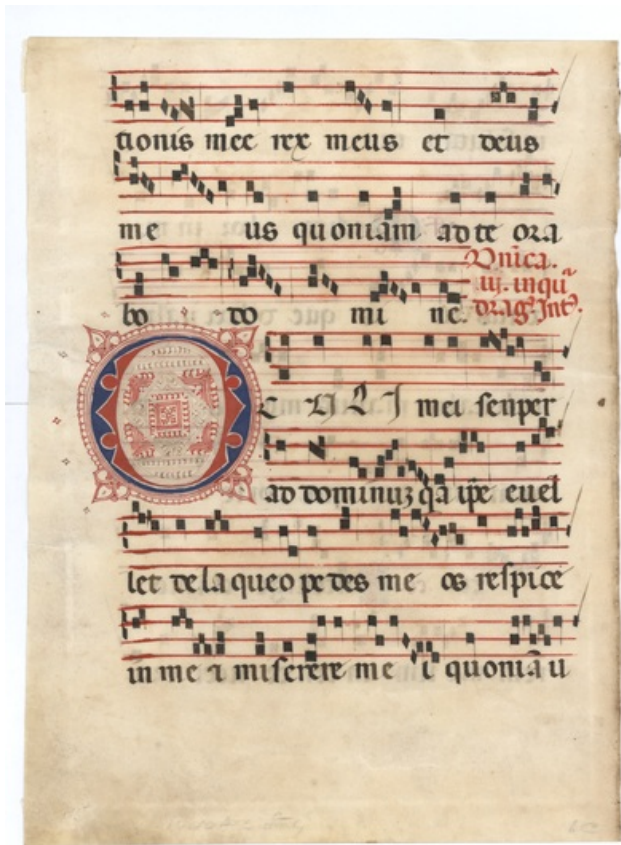 tionis mee rex meus et deus
me us quoniam ad te ora
bo do mi ne.
Dnica.
iij. in qu
drag. Int.
O C U L I mei senper
ad dominuz qa ipe euel
let de la queo pe des me os respice
in me ⁊ miserere me i quoniā u